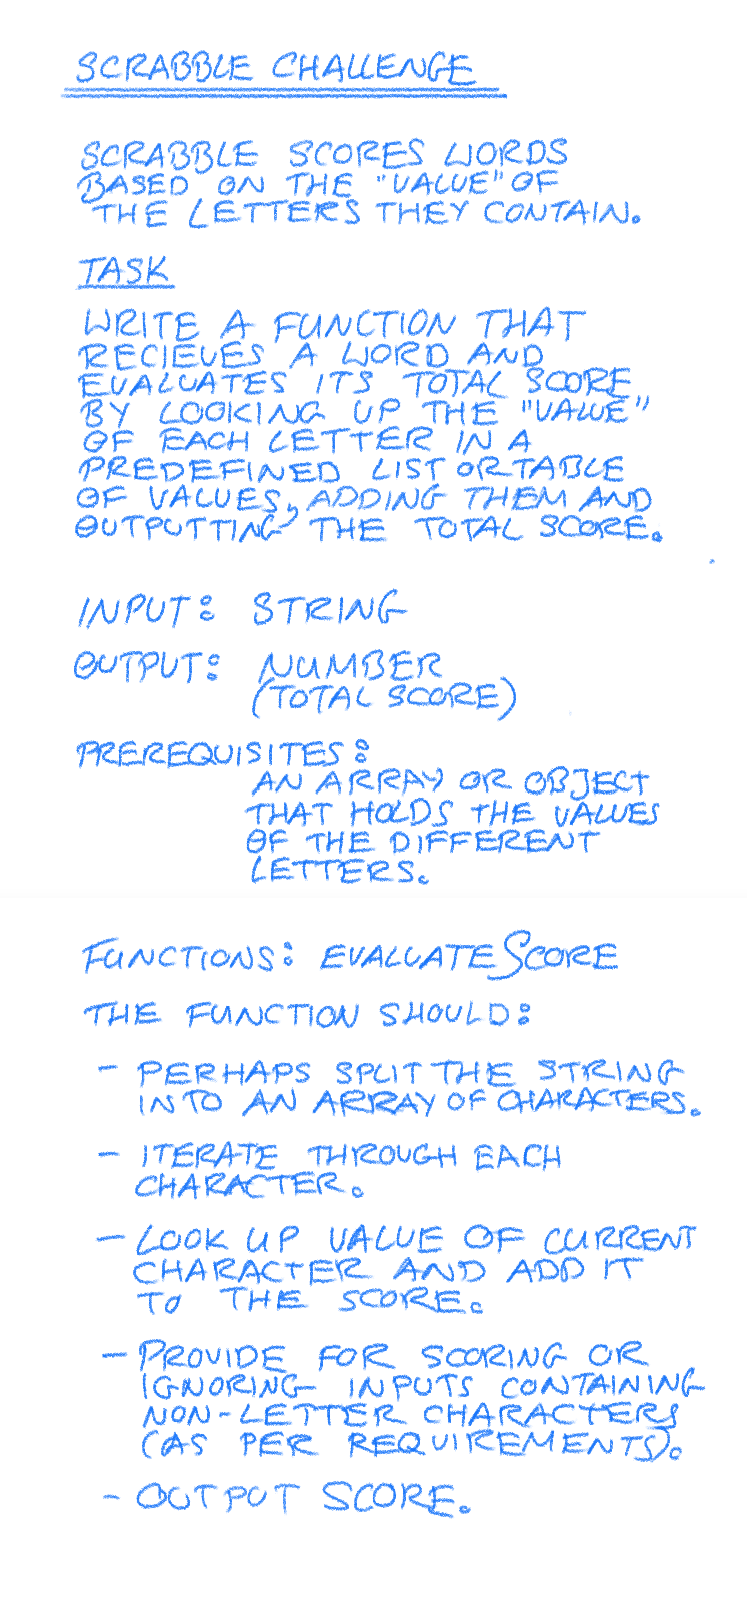 SCRABBLE CHALLENGE
SCRABBLE SCORES WORDS
BASED ON THE "VALUE" OF
THE LETTERS THEY CONTAIN.
TASK
WRITE A FUNCTION THAT
RECIEVES A WORD AND
EVALUATES ITS TOTAL SCORE
BY LOOKING UP THE "VALUE"
OF EACH LETTER IN A
PREDEFINED LIST OR TABLE
OF VALUES, ADDING THEM AND
OUTPUTTING THE TOTAL SCORE.
INPUT: STRING
OUTPUT: NUMBER
(TOTAL SCORE)
PREREQUISITES:
AN ARRAY OR OBJECT
THAT HOLDS THE VALUES
OF THE DIFFERENT
LETTERS.
FUNCTIONS: EVALUATESCORE
THE FUNCTION SHOULD:
- PERHAPS SPLIT THE STRING
INTO AN ARRAY OF CHARACTERS.
- ITERATE THROUGH EACH
CHARACTER.
- LOOK UP VALUE OF CURRENT
CHARACTER AND ADD IT
TO THE SCORE.
- PROVIDE FOR SCORING OR
IGNORING INPUTS CONTAINING
NON-LETTER CHARACTERS
(AS PER REQUIREMENTS).
- OUTPUT SCORE.